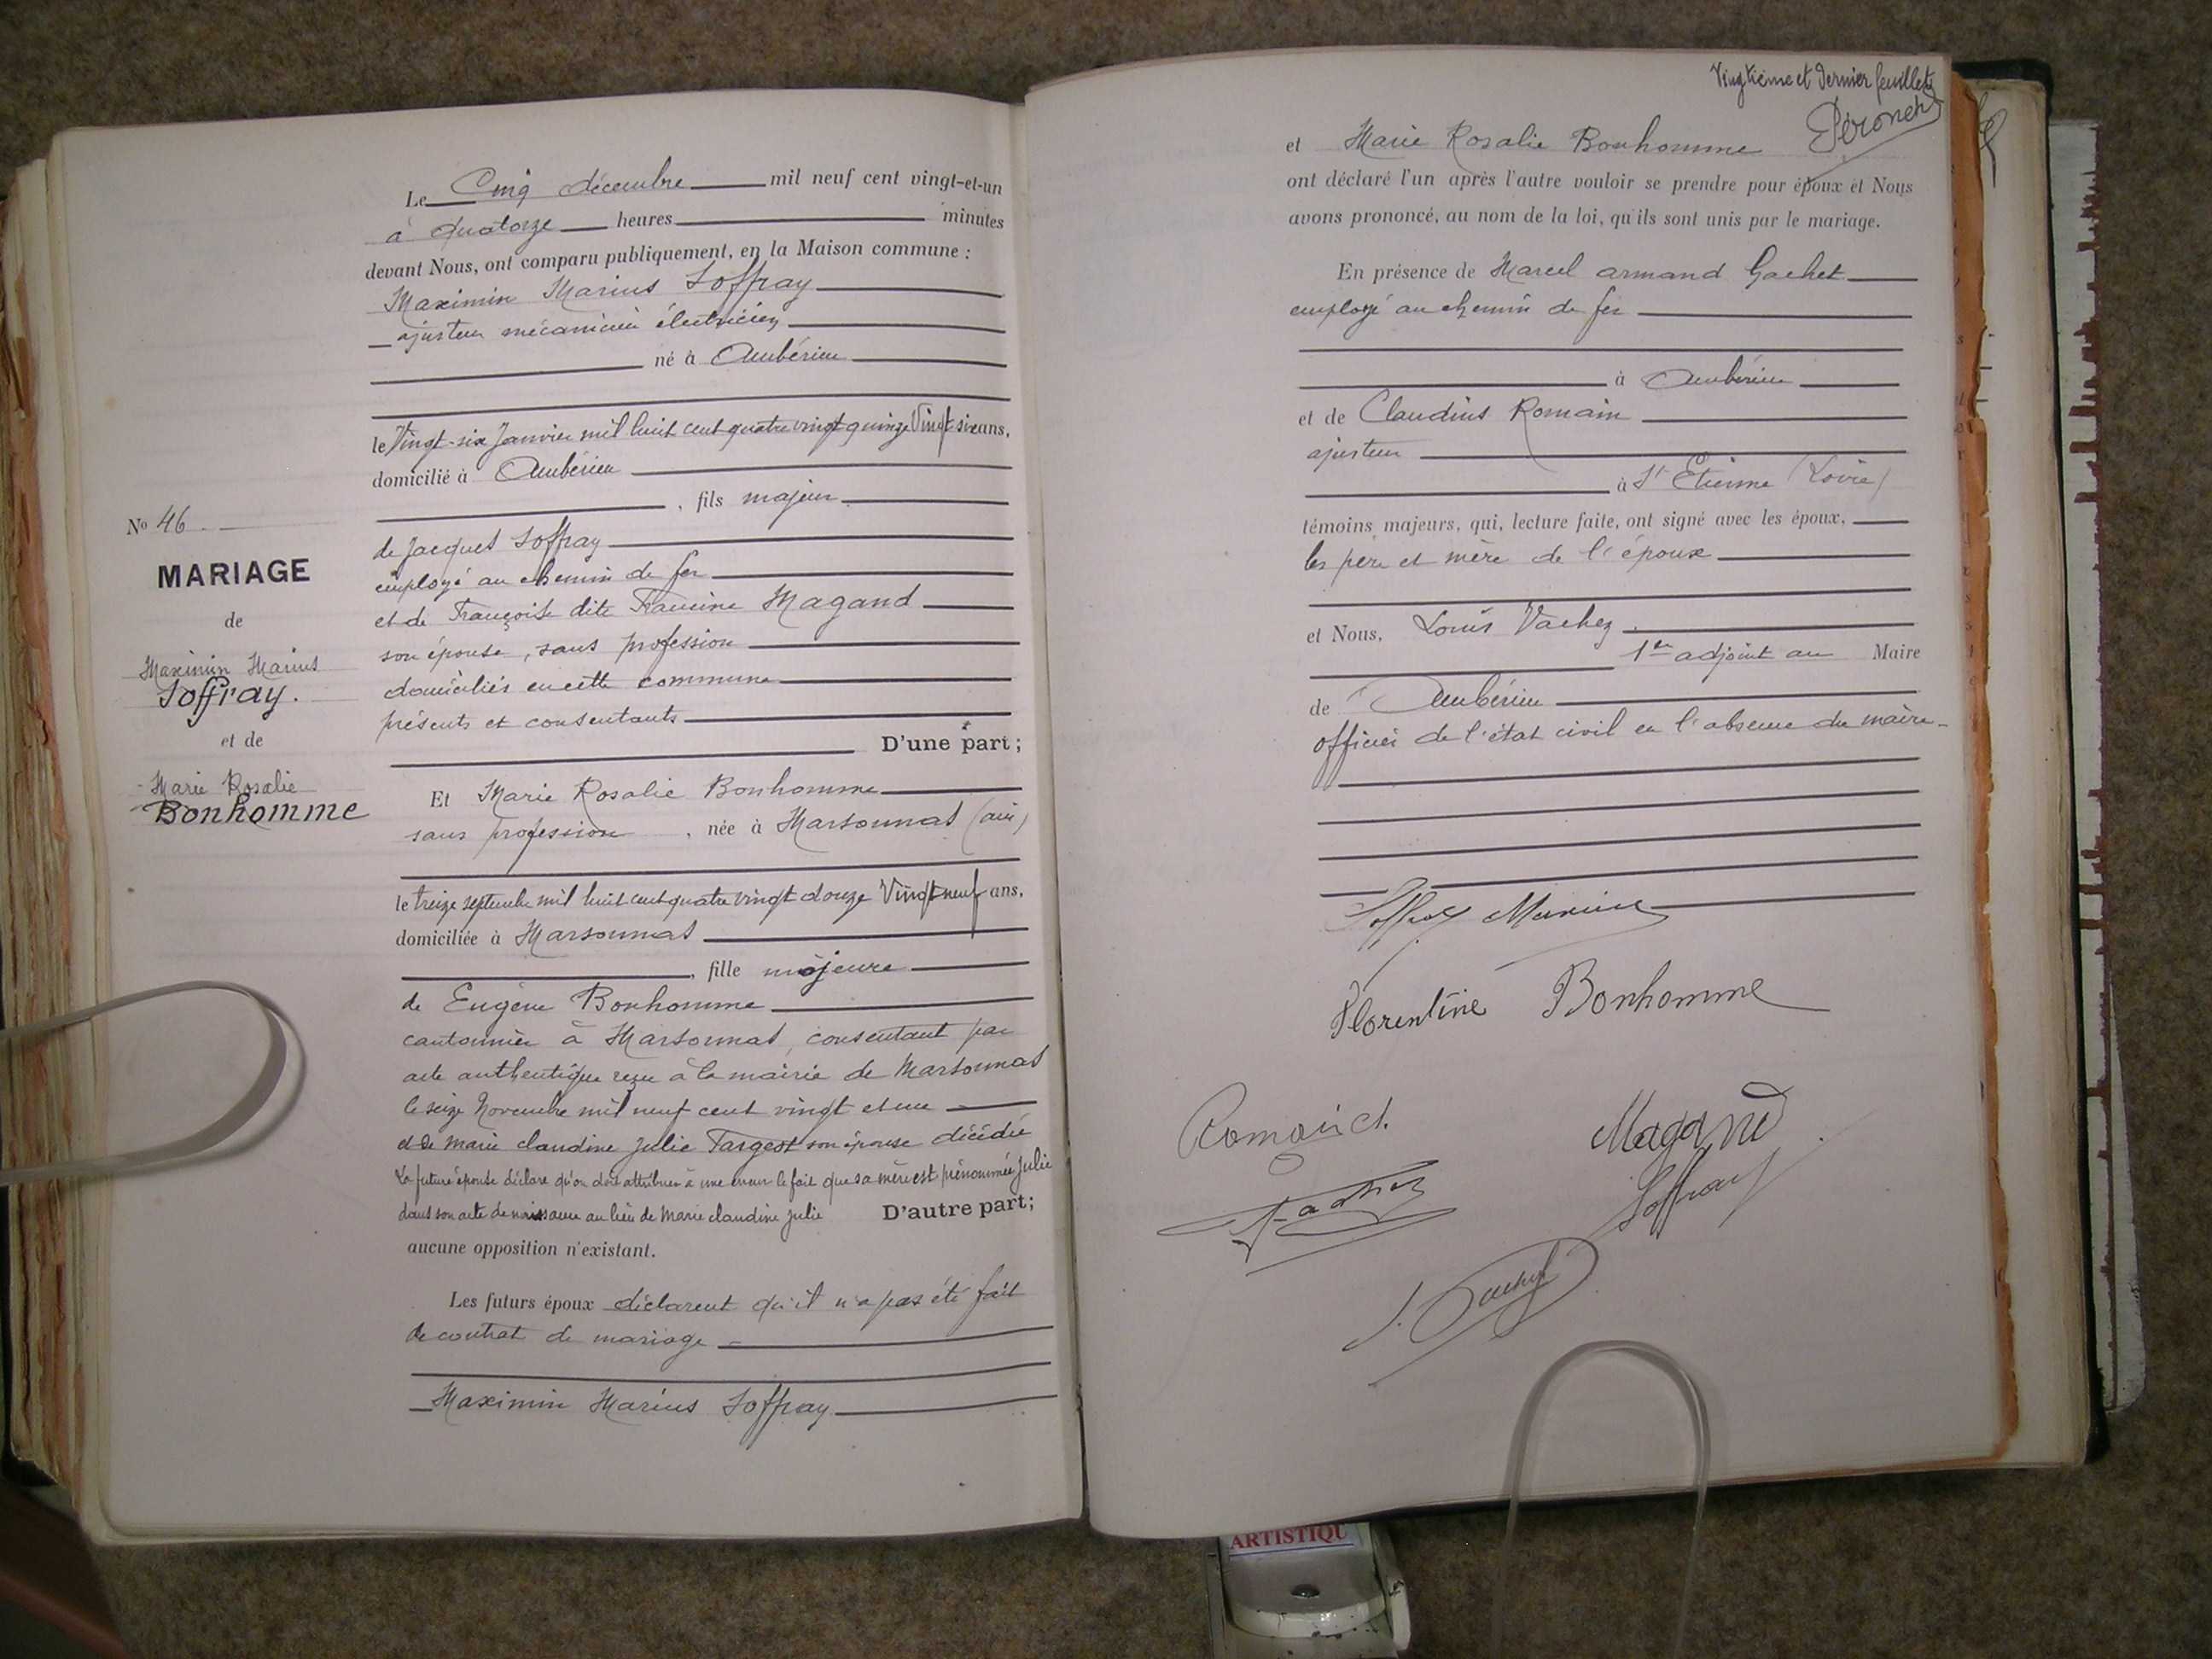 Le Cinq décembre mil neuf cent vingt-et-un
à quatorze heures minutes
devant Nous, ont comparu publiquement, en la Maison commune :
Maximin Marius Soffray
ajusteur mécanicien électricien
né à Ambérieu
le Vingt-six Janvier mil huit cent quatre vingt quinze Vingt six ans,
domicilié à Ambérieu
, fils majeur
de Jacques Soffray
employé au chemin de fer
et de Françoise dite Francine Magand
son épouse, sans profession
domiciliés en cette commune
présents et consentants
D'une part ;
Et Marie Rosalie Bonhomme
sans profession , née à Marsonnas (ain)
le treize septembre mil huit cent quatre vingt douze Vingt neuf ans,
domiciliée à Marsonnas
, fille majeure
de Eugène Bonhomme
cantonnier à Marsonnas, consentant par
acte authentique reçu à la mairie de Marsonnas
le seize Novembre mil neuf cent vingt et un
et de marie claudine julie Targest son épouse décédée
La future épouse déclare qu'on doit attribuer à une erreur le fait que sa mère est prénommée Julie
dans son acte de naissance au lieu de Marie claudine julie D'autre part ;
aucune opposition n'existant.
Les futurs époux déclarent qu'il n'a pas été fait
de contrat de mariage
Maximin Marius Soffray
No 46
MARIAGE
de
Maximin Marius
Soffray.
et de
Marie Rosalie
Bonhomme
Vingtième et dernier feuillet
Péronet
et Marie Rosalie Bonhomme
ont déclaré l'un après l'autre vouloir se prendre pour époux et Nous
avons prononcé, au nom de la loi, qu'ils sont unis par le mariage.
En présence de Marcel armand Gachet
employé au chemin de fer
à Ambérieu
et de Claudius Romain
ajusteur
à St Etienne (Loire)
témoins majeurs, qui, lecture faite, ont signé avec les époux,
les père et mère de l'époux
et Nous, Louis Vachez
1er adjoint au Maire
de Ambérieu
officier de l'état civil en l'absence du maire
Soffray Marius
Florentine Bonhomme
Romain C.
Magand
Soffray
ARTISTIQU